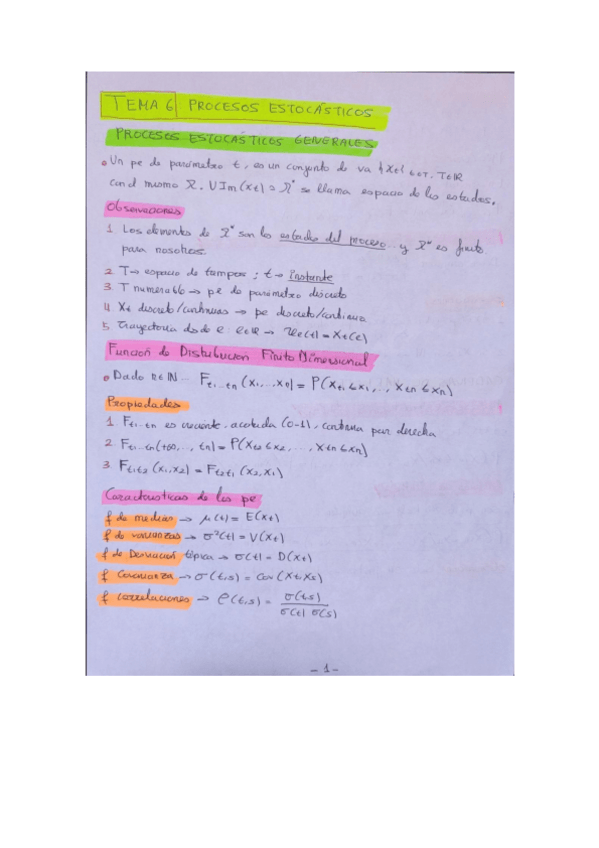 TEMA 6 PROCESOS ESTOCÁSTICOS
PROCESOS ESTOCÁSTICOS GENERALES
• Un pe de parámetro t, es un conjunto de va {Xt} t∈T. T∈ℝ
con el mismo Ω. U Im(xt) o Ω* se llama espacio de los estados.
Observaciones
1. Los elementos de Ω* son los estados del proceso y Ω* es finito
para nosotros.
2 T→ espacio de tiempos; t→ instante
3 T numerable → pe de parámetro discreto
4 Xt discreto/continuas → pe discreto/continuo
5. Trayectoria dado e: e∈Ω → xe(t) = Xt(e)
Función de Distribución Finito Dimensional
• Dado n∈ℕ... Ft1...tn (x1,...,xn) = P(Xt1 ≤ x1,..., Xtn ≤ xn)
Propiedades
1. Ft1...tn es creciente, acotada (0-1), continua por derecha
2. Ft1...tn(+∞,..., tn) = P(Xt2 ≤ x2,..., Xtn ≤ xn)
3. Ft1t2 (x1,x2) = Ft2t1 (x2,x1)
Características de los pe
f de medias → μ(t) = E(Xt)
f de varianzas → σ²(t) = V(Xt)
f de Desviación típica → σ(t) = D(Xt)
f Covarianza → σ(t,s) = Cov(Xt,Xs)
f correlaciones → ρ(t,s) = σ(t,s)
σ(t) σ(s)
- 1 -